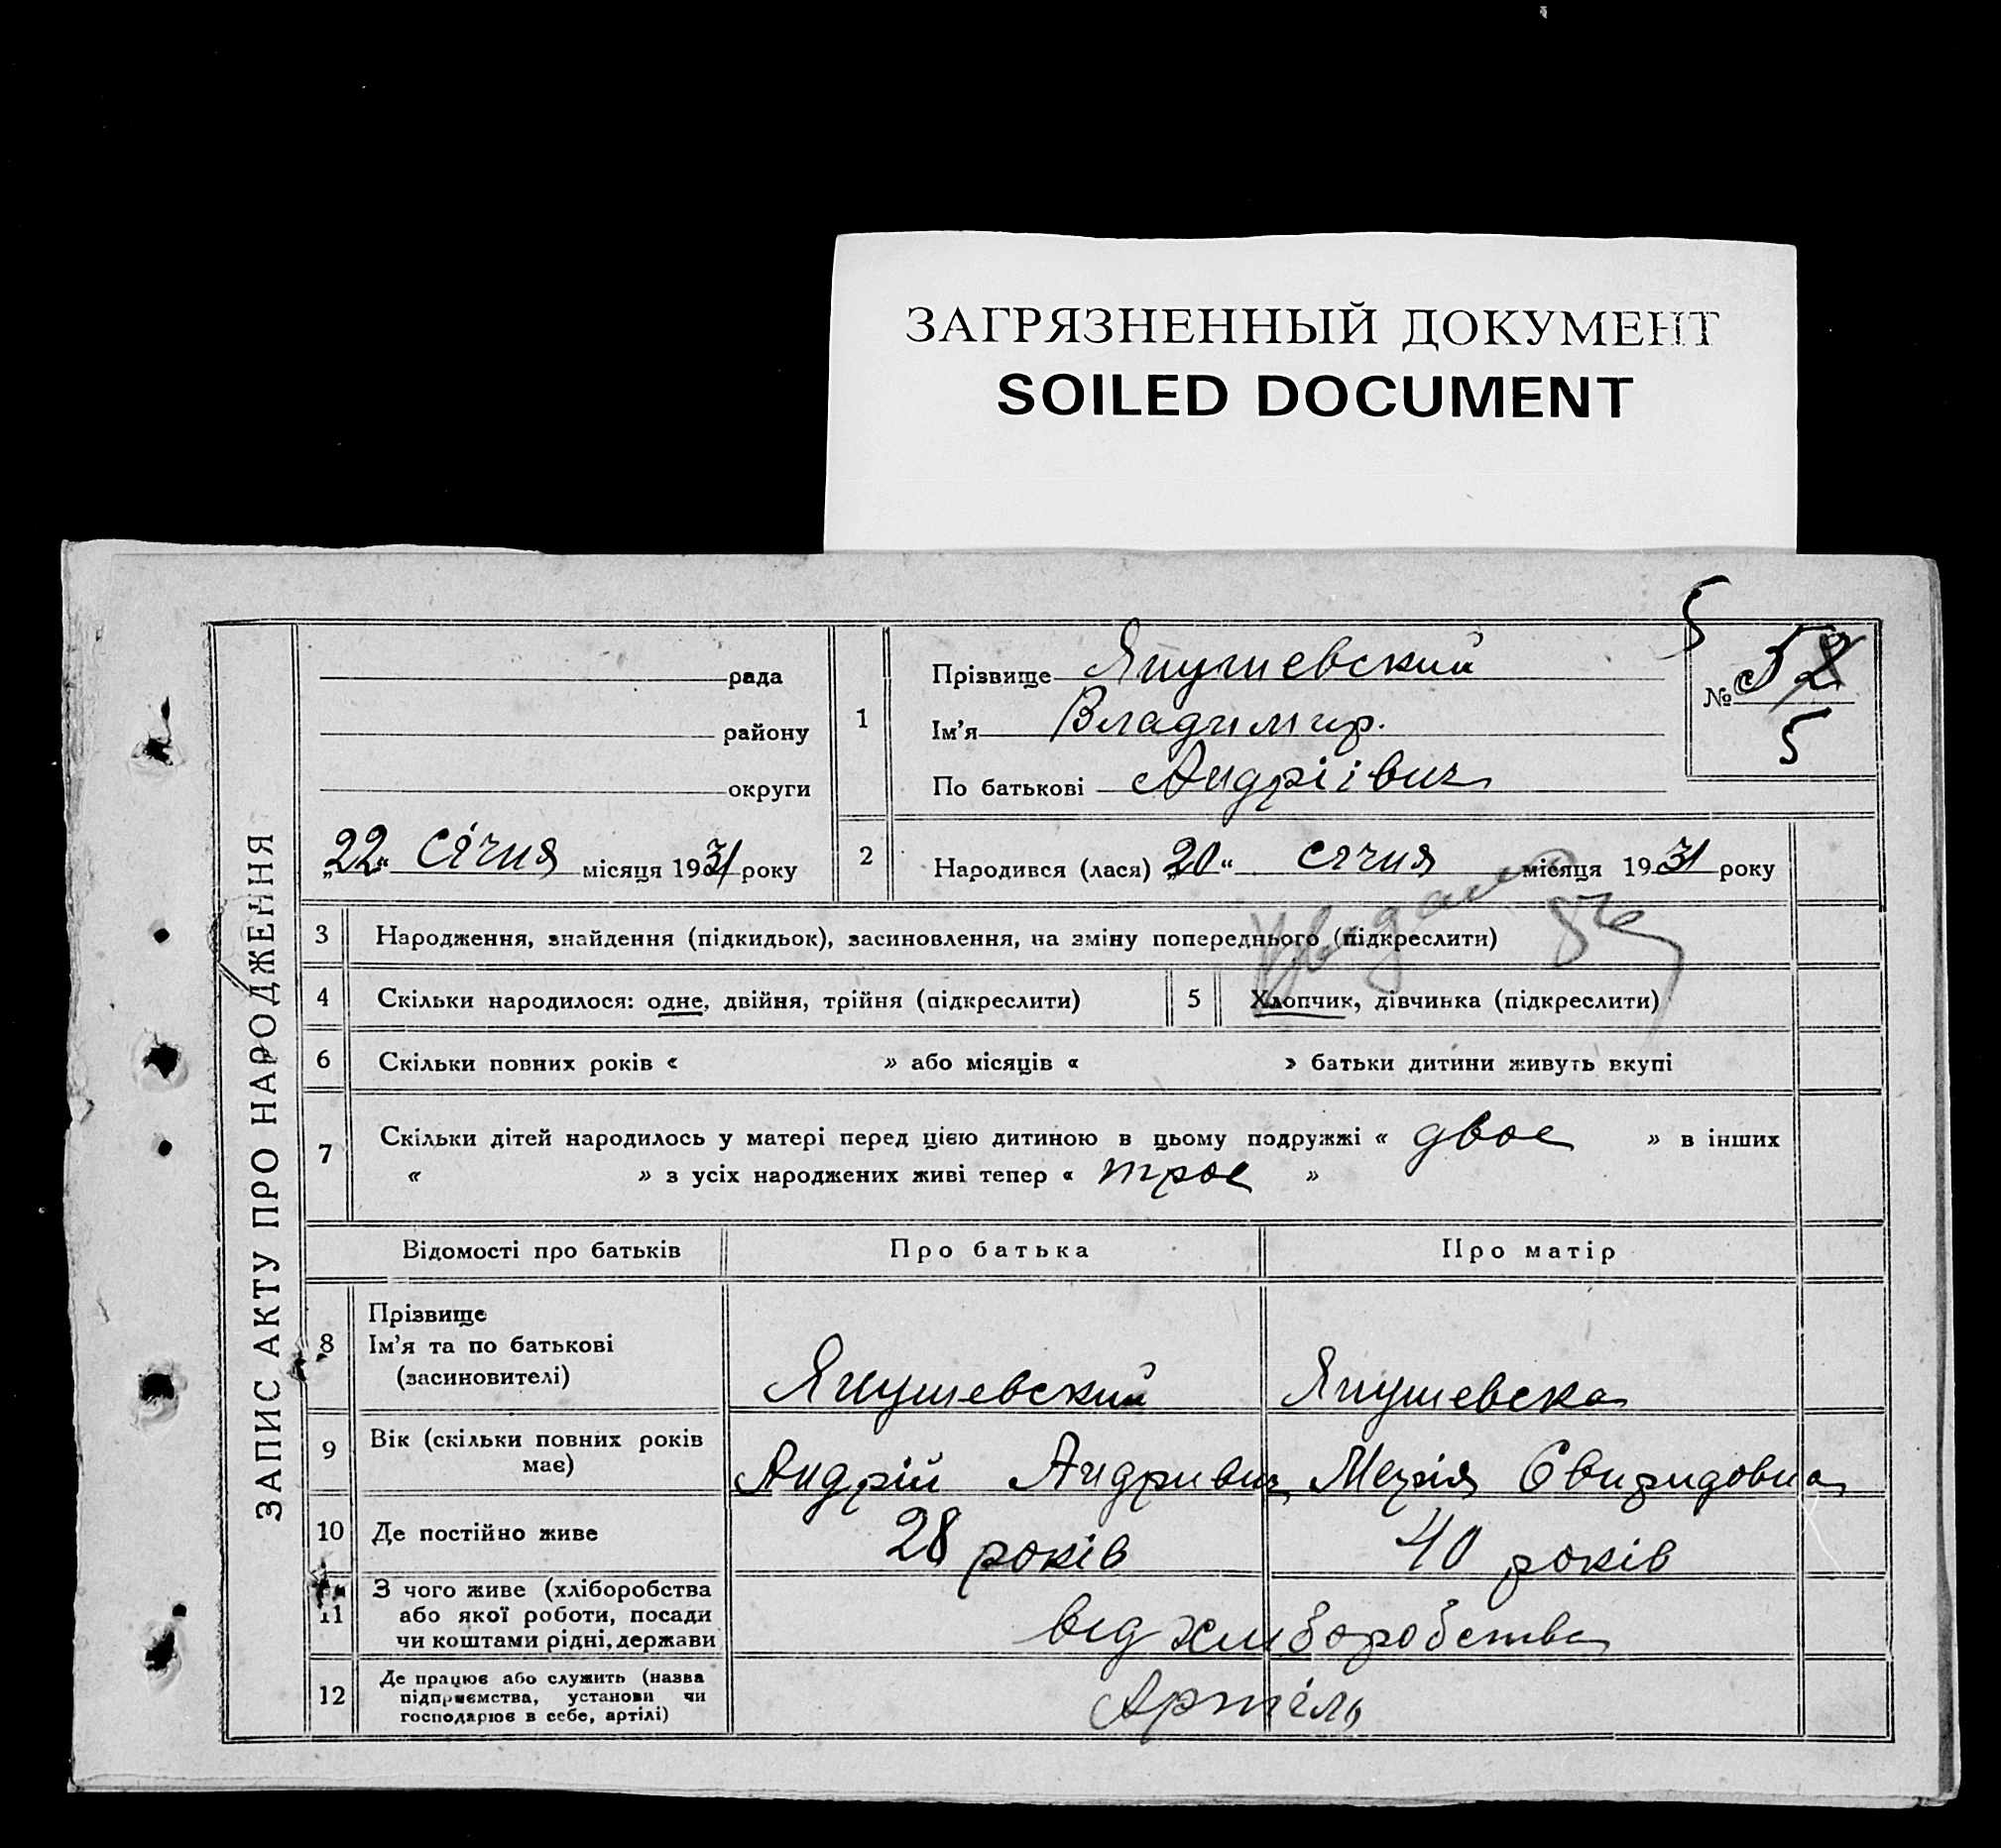 ЗАГРЯЗНЕННЫЙ ДОКУМЕНТ
SOILED DOCUMENT
5
ЗАПИС АКТУ ПРО НАРОДЖЕННЯ
рада
району
округи
„22“ січня місяця 1931 року
1
Прізвище Янушевский
Ім’я Владимир.
По батькові Андріівич
№ 52
5
2 Народився (лася) „20“ січня місяця 1931 року
3 Народження, знайдення (підкидьок), засиновлення, на зміну попереднього (підкреслити)
4 Скільки народилося: одне, двійня, трійня (підкреслити)
5 Хлопчик, дівчинка (підкреслити)
6 Скільки повних років « » або місяців « » батьки дитини живуть вкупі
7 Скільки дітей народилось у матері перед цією дитиною в цьому подружжі « двое » в інших
« » з усіх народжених живі тепер « трое »
Відомості про батьків Про батька Про матір
8 Прізвище
Ім’я та по батькові
(засиновителі)
Янушевский Янушевска
9 Вік (скільки повних років
має)
Андрій Андривич Мерія Свиридовна
10 Де постійно живе
28 років 40 років
11 З чого живе (хліборобства
або якої роботи, посади
чи коштами рідні, держави
від хліборобства
12 Де працює або служить (назва
підприємства, установи чи
господарює в себе, артілі)
Артіль